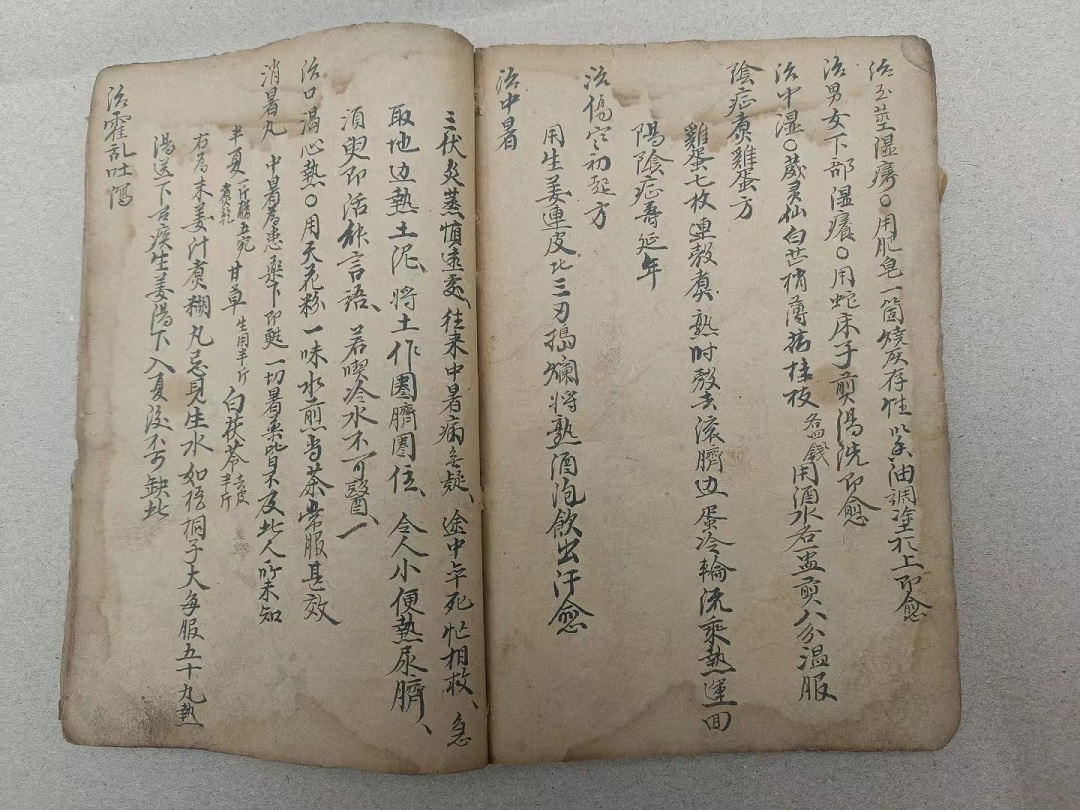 治玉莖湿癢〇用肥皂一箇燒灰存性以香油調塗於上即愈
治男女下部湿癢〇用蛇床子煎湯洗即愈
治中湿〇葳灵仙白芷梢薄荷桂枝各四錢用酒水各盅煎八分温服
陰症煑雞蛋方
雞蛋七枚連殼煑熟时殼去滚臍边蛋冷輪流乘熱運回
陽陰症壽延年
治傷寒初起方
用生姜連皮比三刃搗爛将熟酒泡飲出汗愈
治中暑
三伏炎蒸慎遠委、往来中暑病無疑、途中卒死忙相救、急
取地边熱土泥、将土作圈臍圈住、令人小便熱尿臍、
須臾即活能言語、若喫冷水不可醫、一
治口渴心熱〇用天花粉一味水煎当茶常服甚效
消暑丸 中暑為患藥下即甦一切暑藥皆不及此人所未知
半夏一斤醋五宛煑乾 甘草生用半斤 白茯苓去皮半斤
右為末姜汁煑糊丸忌見生水如梧桐子大每服五十丸熱
湯送下舌痰生姜湯下入夏後不可缺此
治霍乱吐瀉